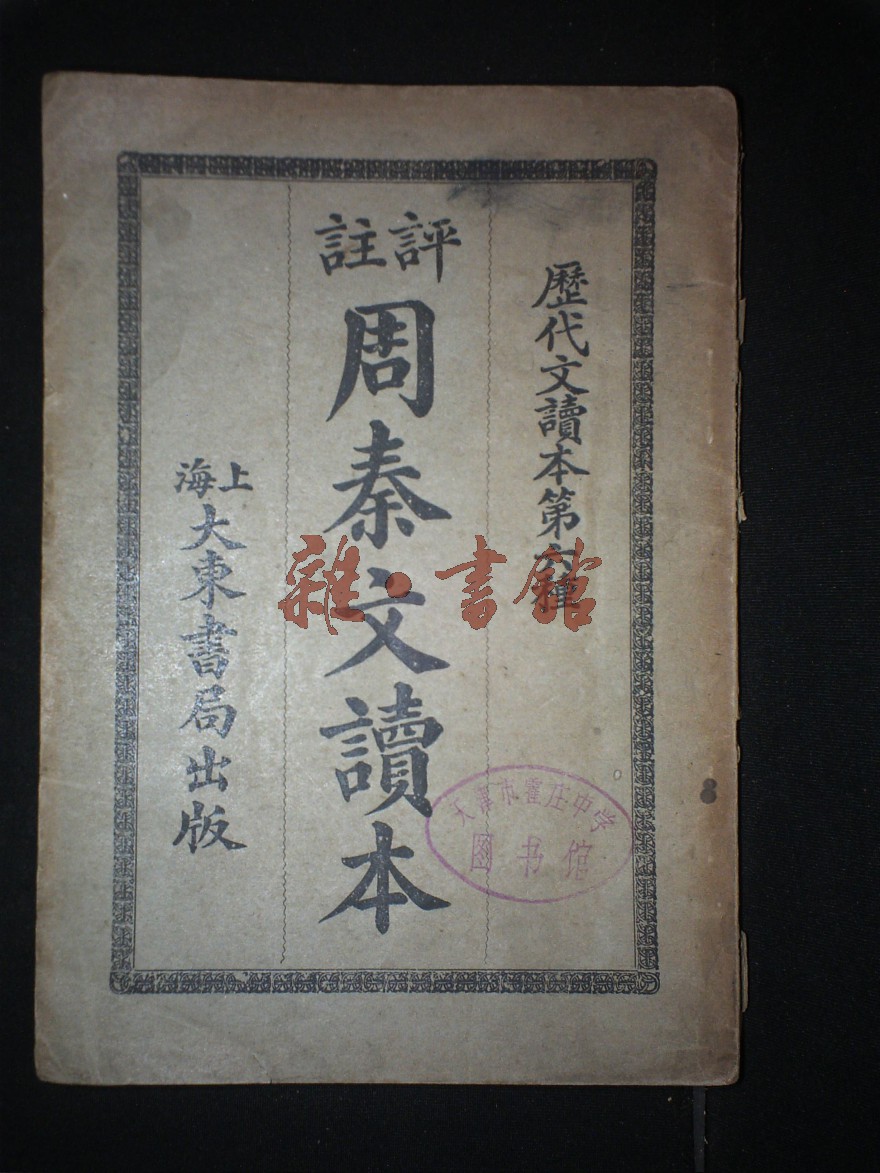 歷代文讀本第六種
評註
周秦文讀本
上海
大東書局出版
雜·書館
天津市霍庄中学
图书馆
8